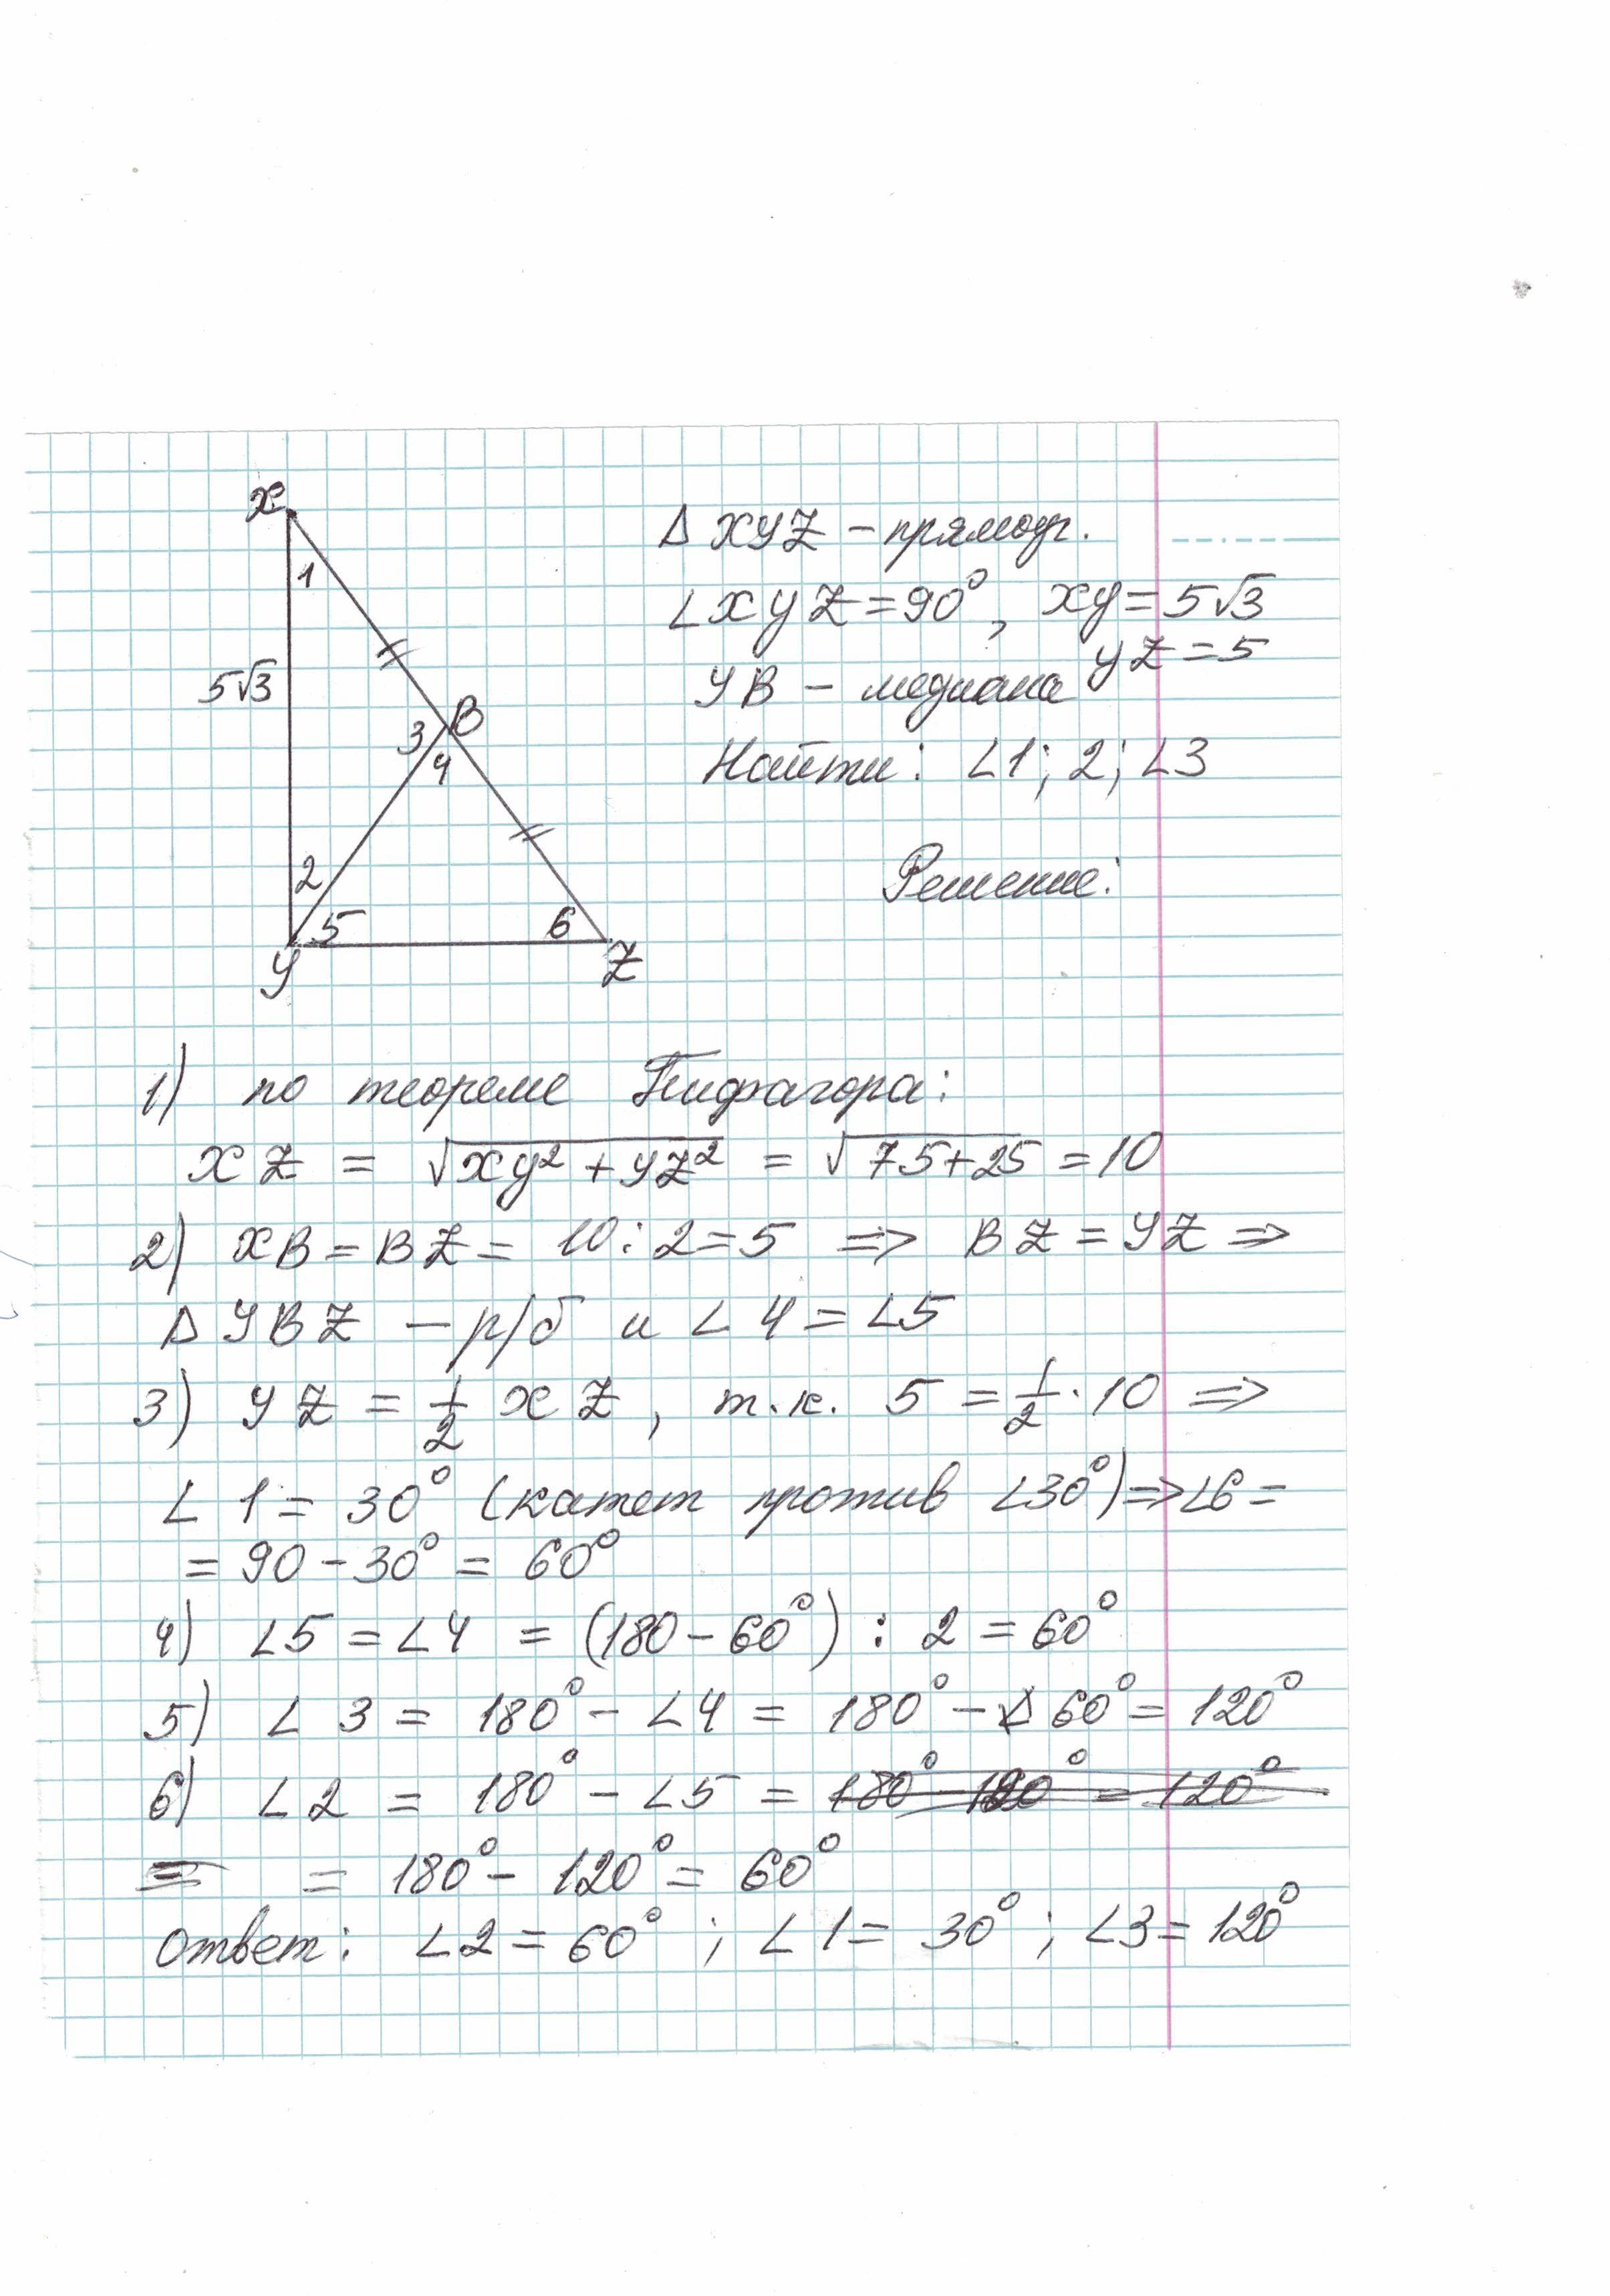 X
1
5√3
3 B
4
2
5 6
У Z
Δ XУZ – прямоуг.
∠XУZ = 90°, XУ = 5√3
УZ = 5
УB – медиана
Найти: ∠1; 2; ∠3
Решение:
1) по теореме Пифагора:
XZ = √XУ² + УZ² = √75+25 = 10
2) XB = BZ = 10 : 2 = 5 => BZ = УZ =>
Δ УBZ – р/б и ∠4 = ∠5
3) УZ = 1/2 XZ, т.к. 5 = 1/2 · 10 =>
∠1 = 30° (катет против ∠30°) => ∠6 =
= 90 – 30° = 60°
4) ∠5 = ∠4 = (180 – 60°) : 2 = 60°
5) ∠3 = 180° – ∠4 = 180° – 60° = 120°
6) ∠2 = 180° – ∠5 =
= 180° – 120° = 60°
ответ: ∠2 = 60°; ∠1 = 30°; ∠3 = 120°